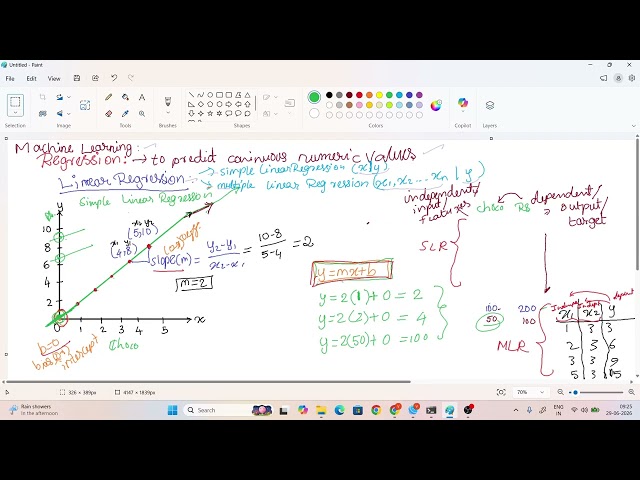 Untitled - Paint
File Edit View
Selection Image Tools Brushes Shapes Colors Copilot Layers
Machine Learning:
Regression: → to predict coninuous numeric values
Linear Regression → simple Linear Regression (x|y)
→ multiple linear Regression (x1, x2 ... xn | y)
Simple Linear Regression
y
10
8
6
4
2
0
1 2 3 4 5 x
Choco
x2 y2
(5,10)
x1 y1
(4,8)
slope(m) = y2-y1 / x2-x1 = 10-8 / 5-4 = 2
m=2
b=0
intercept
y=mx+b
y=2(1)+0 = 2
y=2(2)+0 = 4
y=2(50)+0 =100
independents/
input/
features
choco Rs
dependent/
output/
target
SLR
100 200
50 100
MLR
x1 x2 y
1 3 3
2 3 6
3 3 9
5 3 15
326 × 389px
4147 × 1839px
70%
Rain showers
In the afternoon
Search
ENG
IN
09:25
29-06-2026